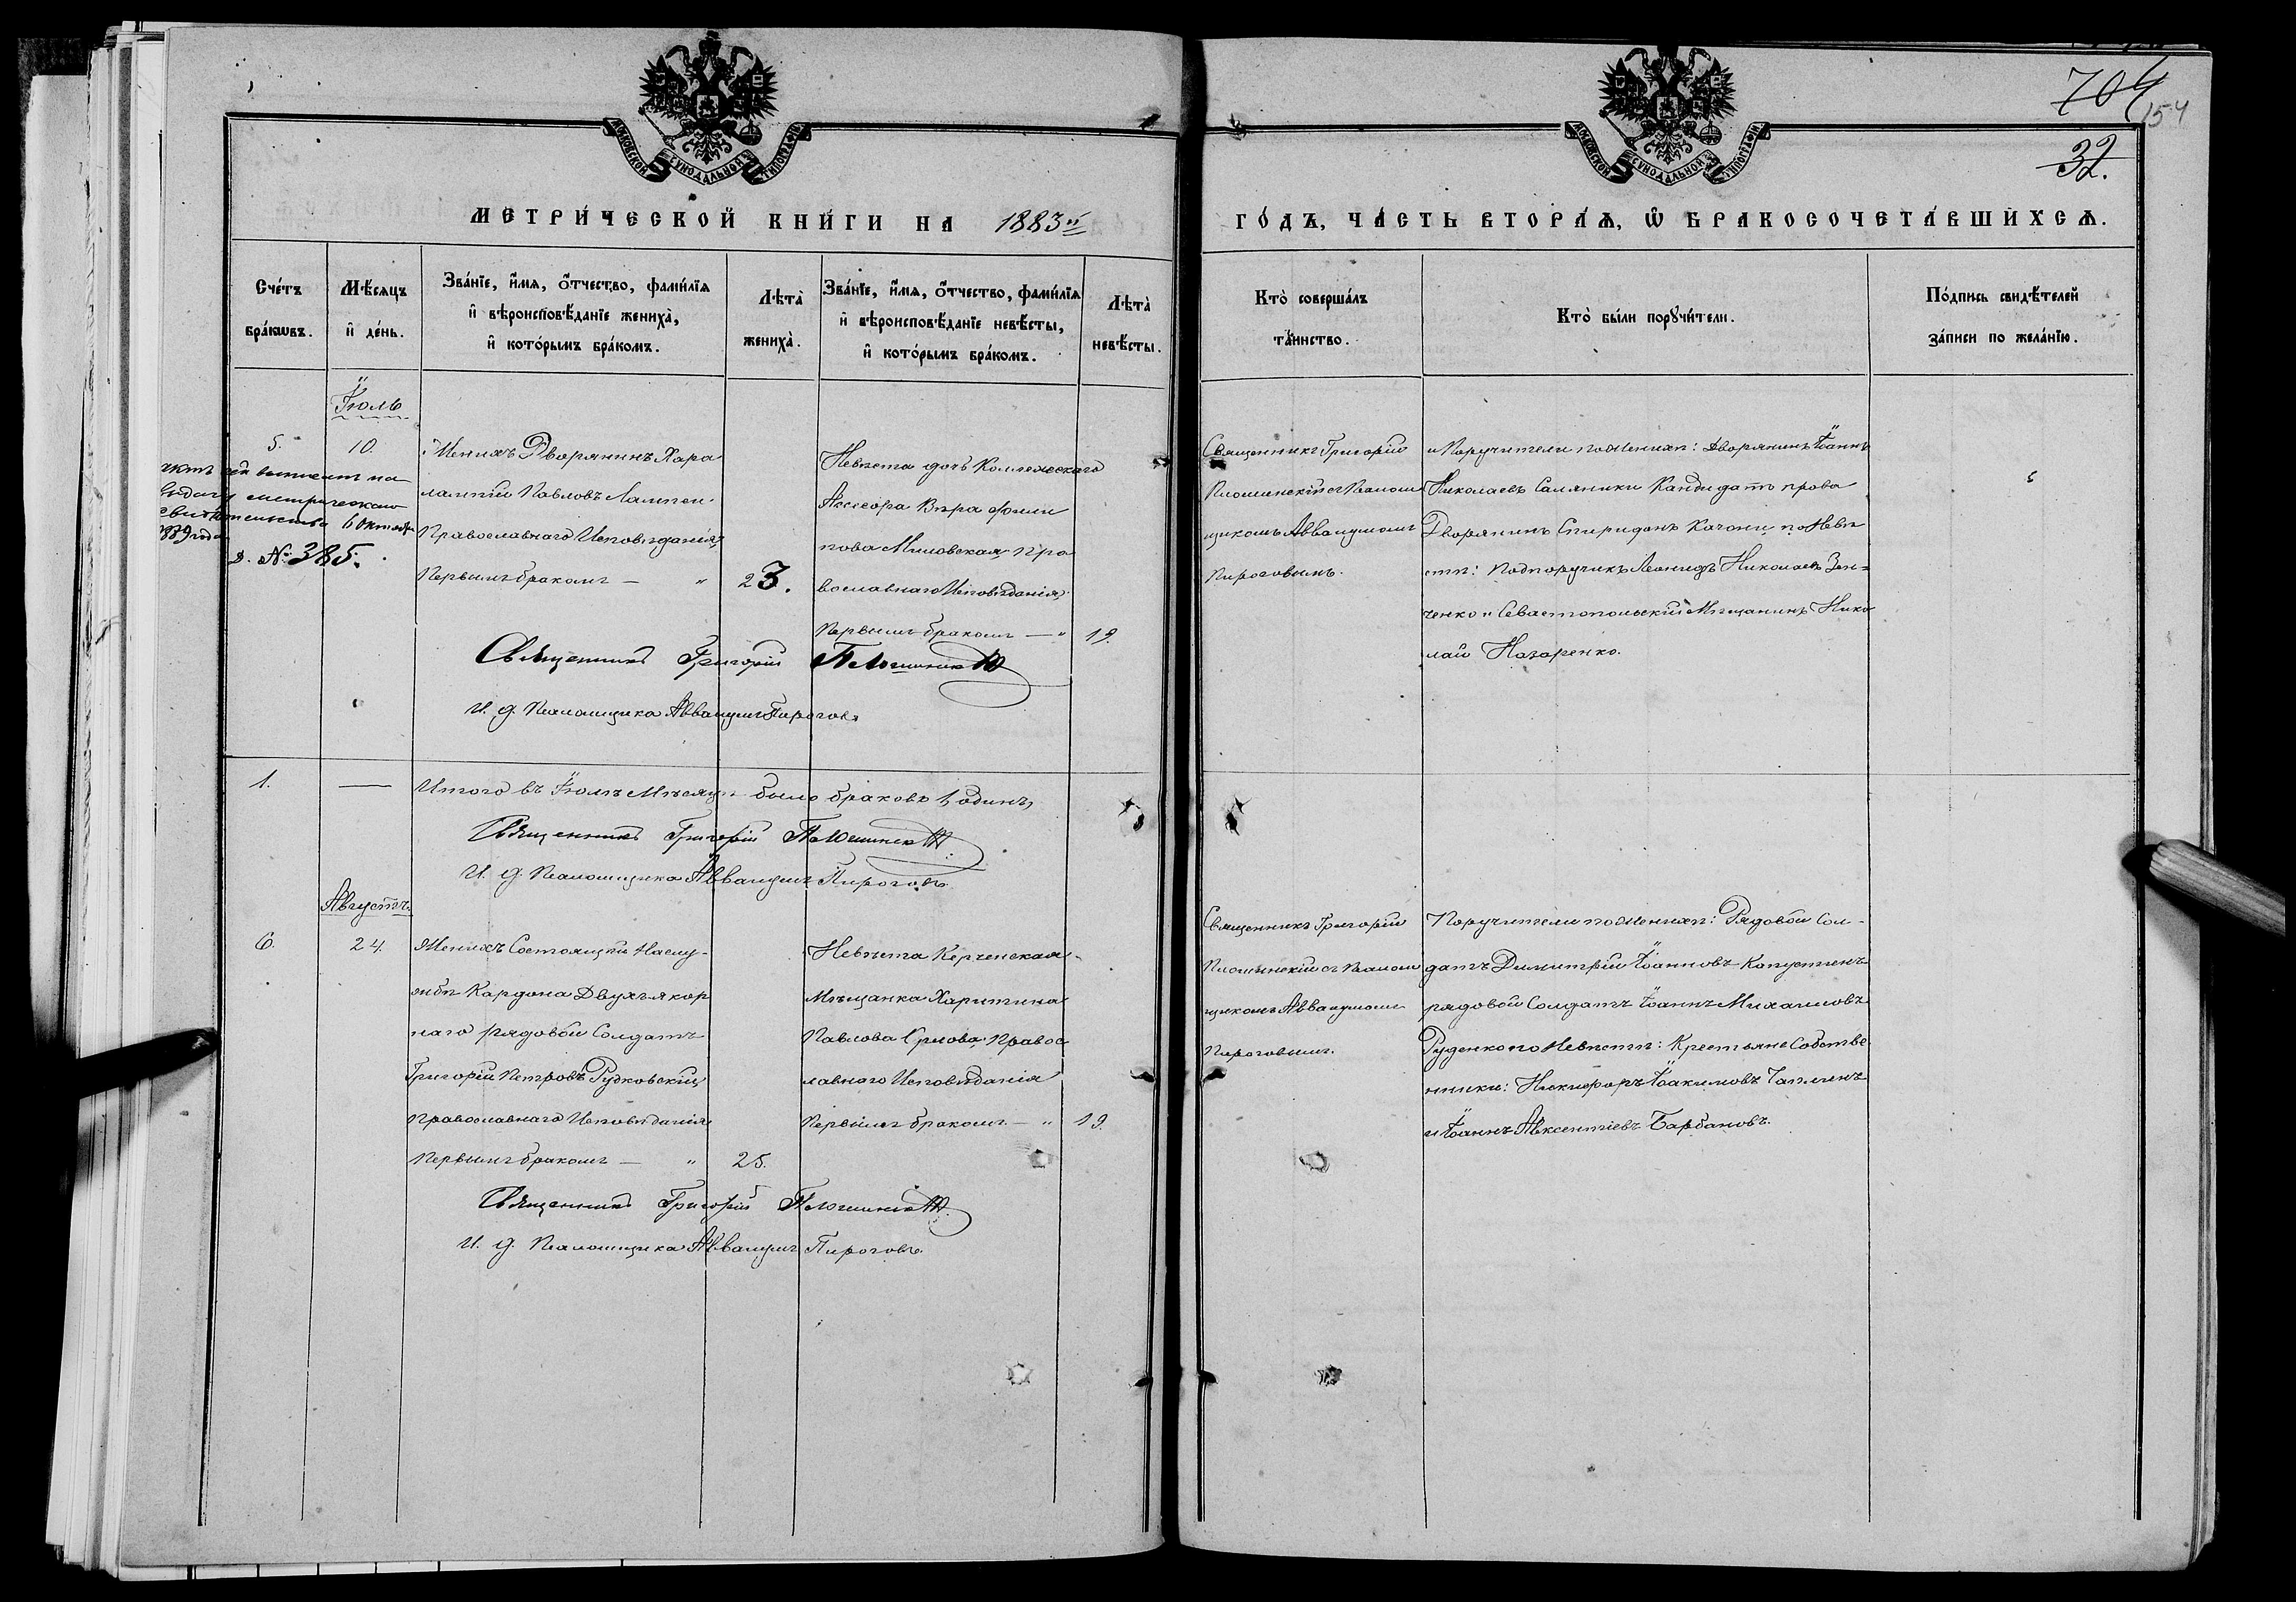 МОСКОВСКОЙ СѴНОДАЛЬНОЙ ТИПОГРАФІИ
МОСКОВСКОЙ СѴНОДАЛЬНОЙ ТИПОГРАФІИ
704
154
32.
МЕТРИ́ЧЕСКОЙ КНИ́ГИ НА 1883й
ГО́ДЪ, ЧА́СТЬ ВТОРА́Ѧ, Ѡ҆ БРАКОСОЧЕТА́ВШИХСѦ.
Сче́тъ бра́кѡвъ.
Мѣ́сяцъ и҆ де́нь.
Зва́нїе, и҆́мя, ѻ҆́тчество, фами́лїя и҆ вѣроисповѣ́данїе жениха̀, и҆ кото́рымъ бра́комъ.
Лѣта̀ жениха̀.
Зва́нїе, и҆́мя, ѻ҆́тчество, фами́лїя и҆ вѣроисповѣ́данїе невѣ́сты, и҆ кото́рымъ бра́комъ.
Лѣта̀ невѣ́сты.
Кто̀ соверша́лъ та́инство.
Кто̀ бы́ли порꙋчи́тели.
По́дпись свидѣ́телей за́писи по жела́нїю.
Іюль
5.
10.
выдачу метрическаго
свидѣтельства 6 Октября
1889 года
№ 385.
Женихъ Дворянинъ Хара
лампій Павловъ Лампси
Православнаго Исповѣданія,
Первымъ бракомъ — "
23.
Невѣста дочь Коллежскаго
Ассесора Вѣра Филип
пова Миловская Пра
вославнаго Исповѣданія,
Первымъ бракомъ — "
19.
Священникъ Григорій
съ Псалом
щикомъ Аввакумомъ
Пироговымъ.
Поручители по Женихѣ: Дворянинъ Іоаннъ
Николаевъ Кандидатъ права
Дворянинъ Спиридонъ Качони, по Невѣ
стѣ: Подпоручикъ Леонидъ Николаевъ Зен=
ченко и Севастопольскій Мѣщанинъ Нико
лай Назаренко.
Священникъ Григорій
И. д. Псаломщика Аввакумъ Пироговъ
1.
—
Итого въ Іюлѣ Мѣсяцѣ было браковъ 1, одинъ,
Священникъ Григорій
И. д. Псаломщика Аввакумъ Пироговъ
Августъ
6.
24.
Женихъ Состоящій На слу-
жбѣ Кардона Двухъякор
наго рядовой Солдатъ
Григорій Петровъ Рудковскій
Православнаго Исповѣданія
Первымъ бракомъ — "
25.
Невѣста Керченская
Мѣщанка Харитина
Павлова Правос
лавнаго Исповѣданія
Первымъ бракомъ — "
19.
Священникъ Григорій
съ Псалом
щикомъ Аввакумомъ
Пироговымъ.
Поручители по Женихѣ: Рядовой Сол-
датъ Димитрій Іоанновъ
рядовой Солдатъ Іоаннъ Михаиловъ
Руденко по Невѣстѣ: Крестьяне Собстве
нники: Никифоръ Іоакимовъ
и Іоаннъ Авксентіевъ Барбановъ.
Священникъ Григорій
И. д. Псаломщика Аввакумъ Пироговъ.